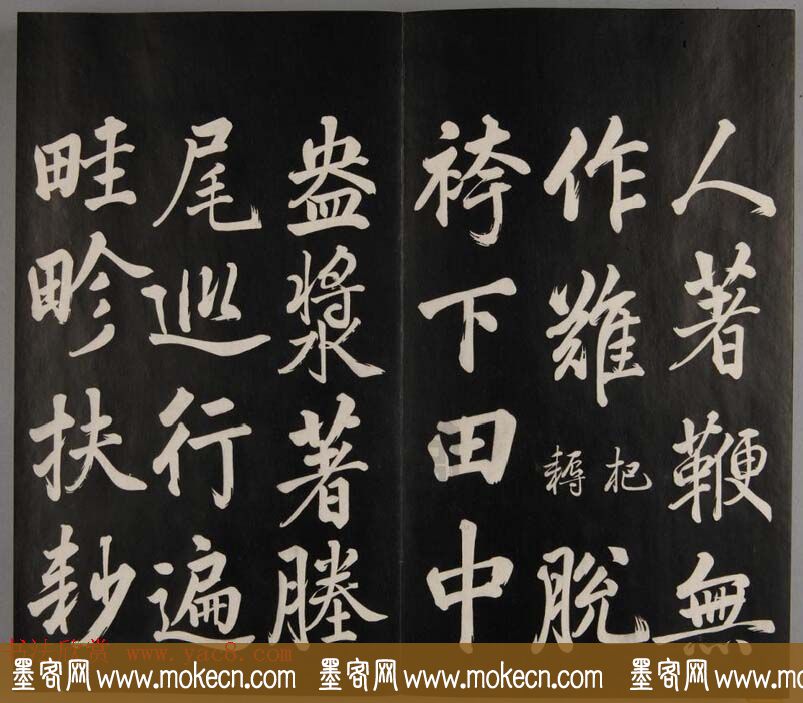 人著鞭無
作難脫
袴下田中
盎漿著塍
尾巡行遍
畦畛扶耖
书法欣赏 www.yac8.com
墨客网 www.mokecn.com 墨客网 www.mokecn.com 墨客网 www.mokecn.com